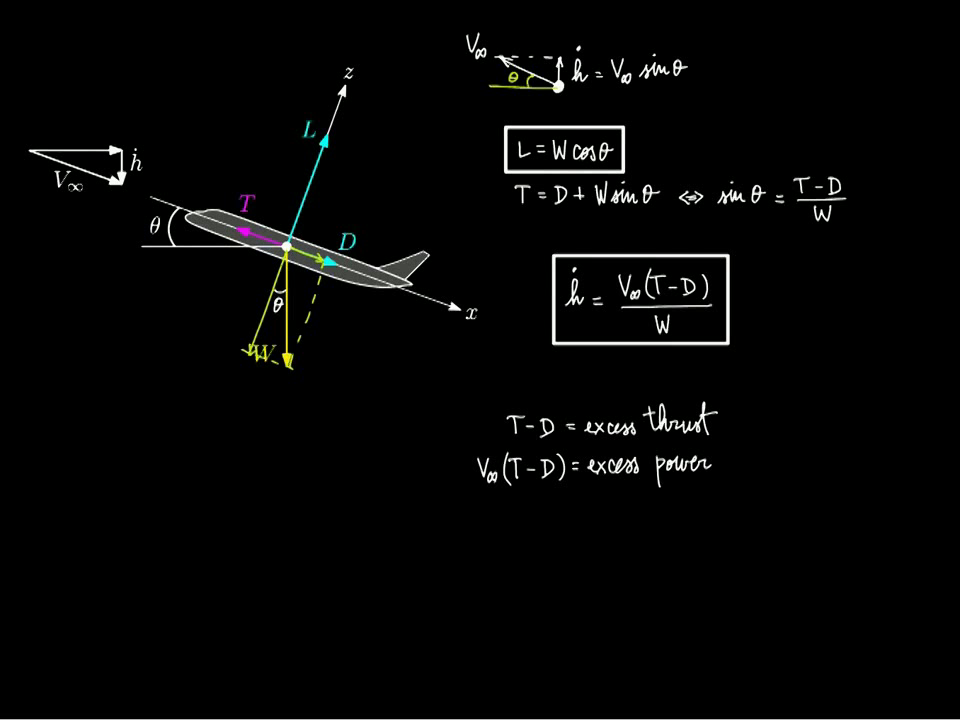 z
L
ḣ
V∞
T
θ
D
θ
x
W
V∞
θ
ḣ = V∞ sinθ
L = W cosθ
T = D + W sinθ ⇔ sinθ = (T-D)/W
ḣ = V∞(T-D)/W
T-D = excess thrust
V∞(T-D) = excess power